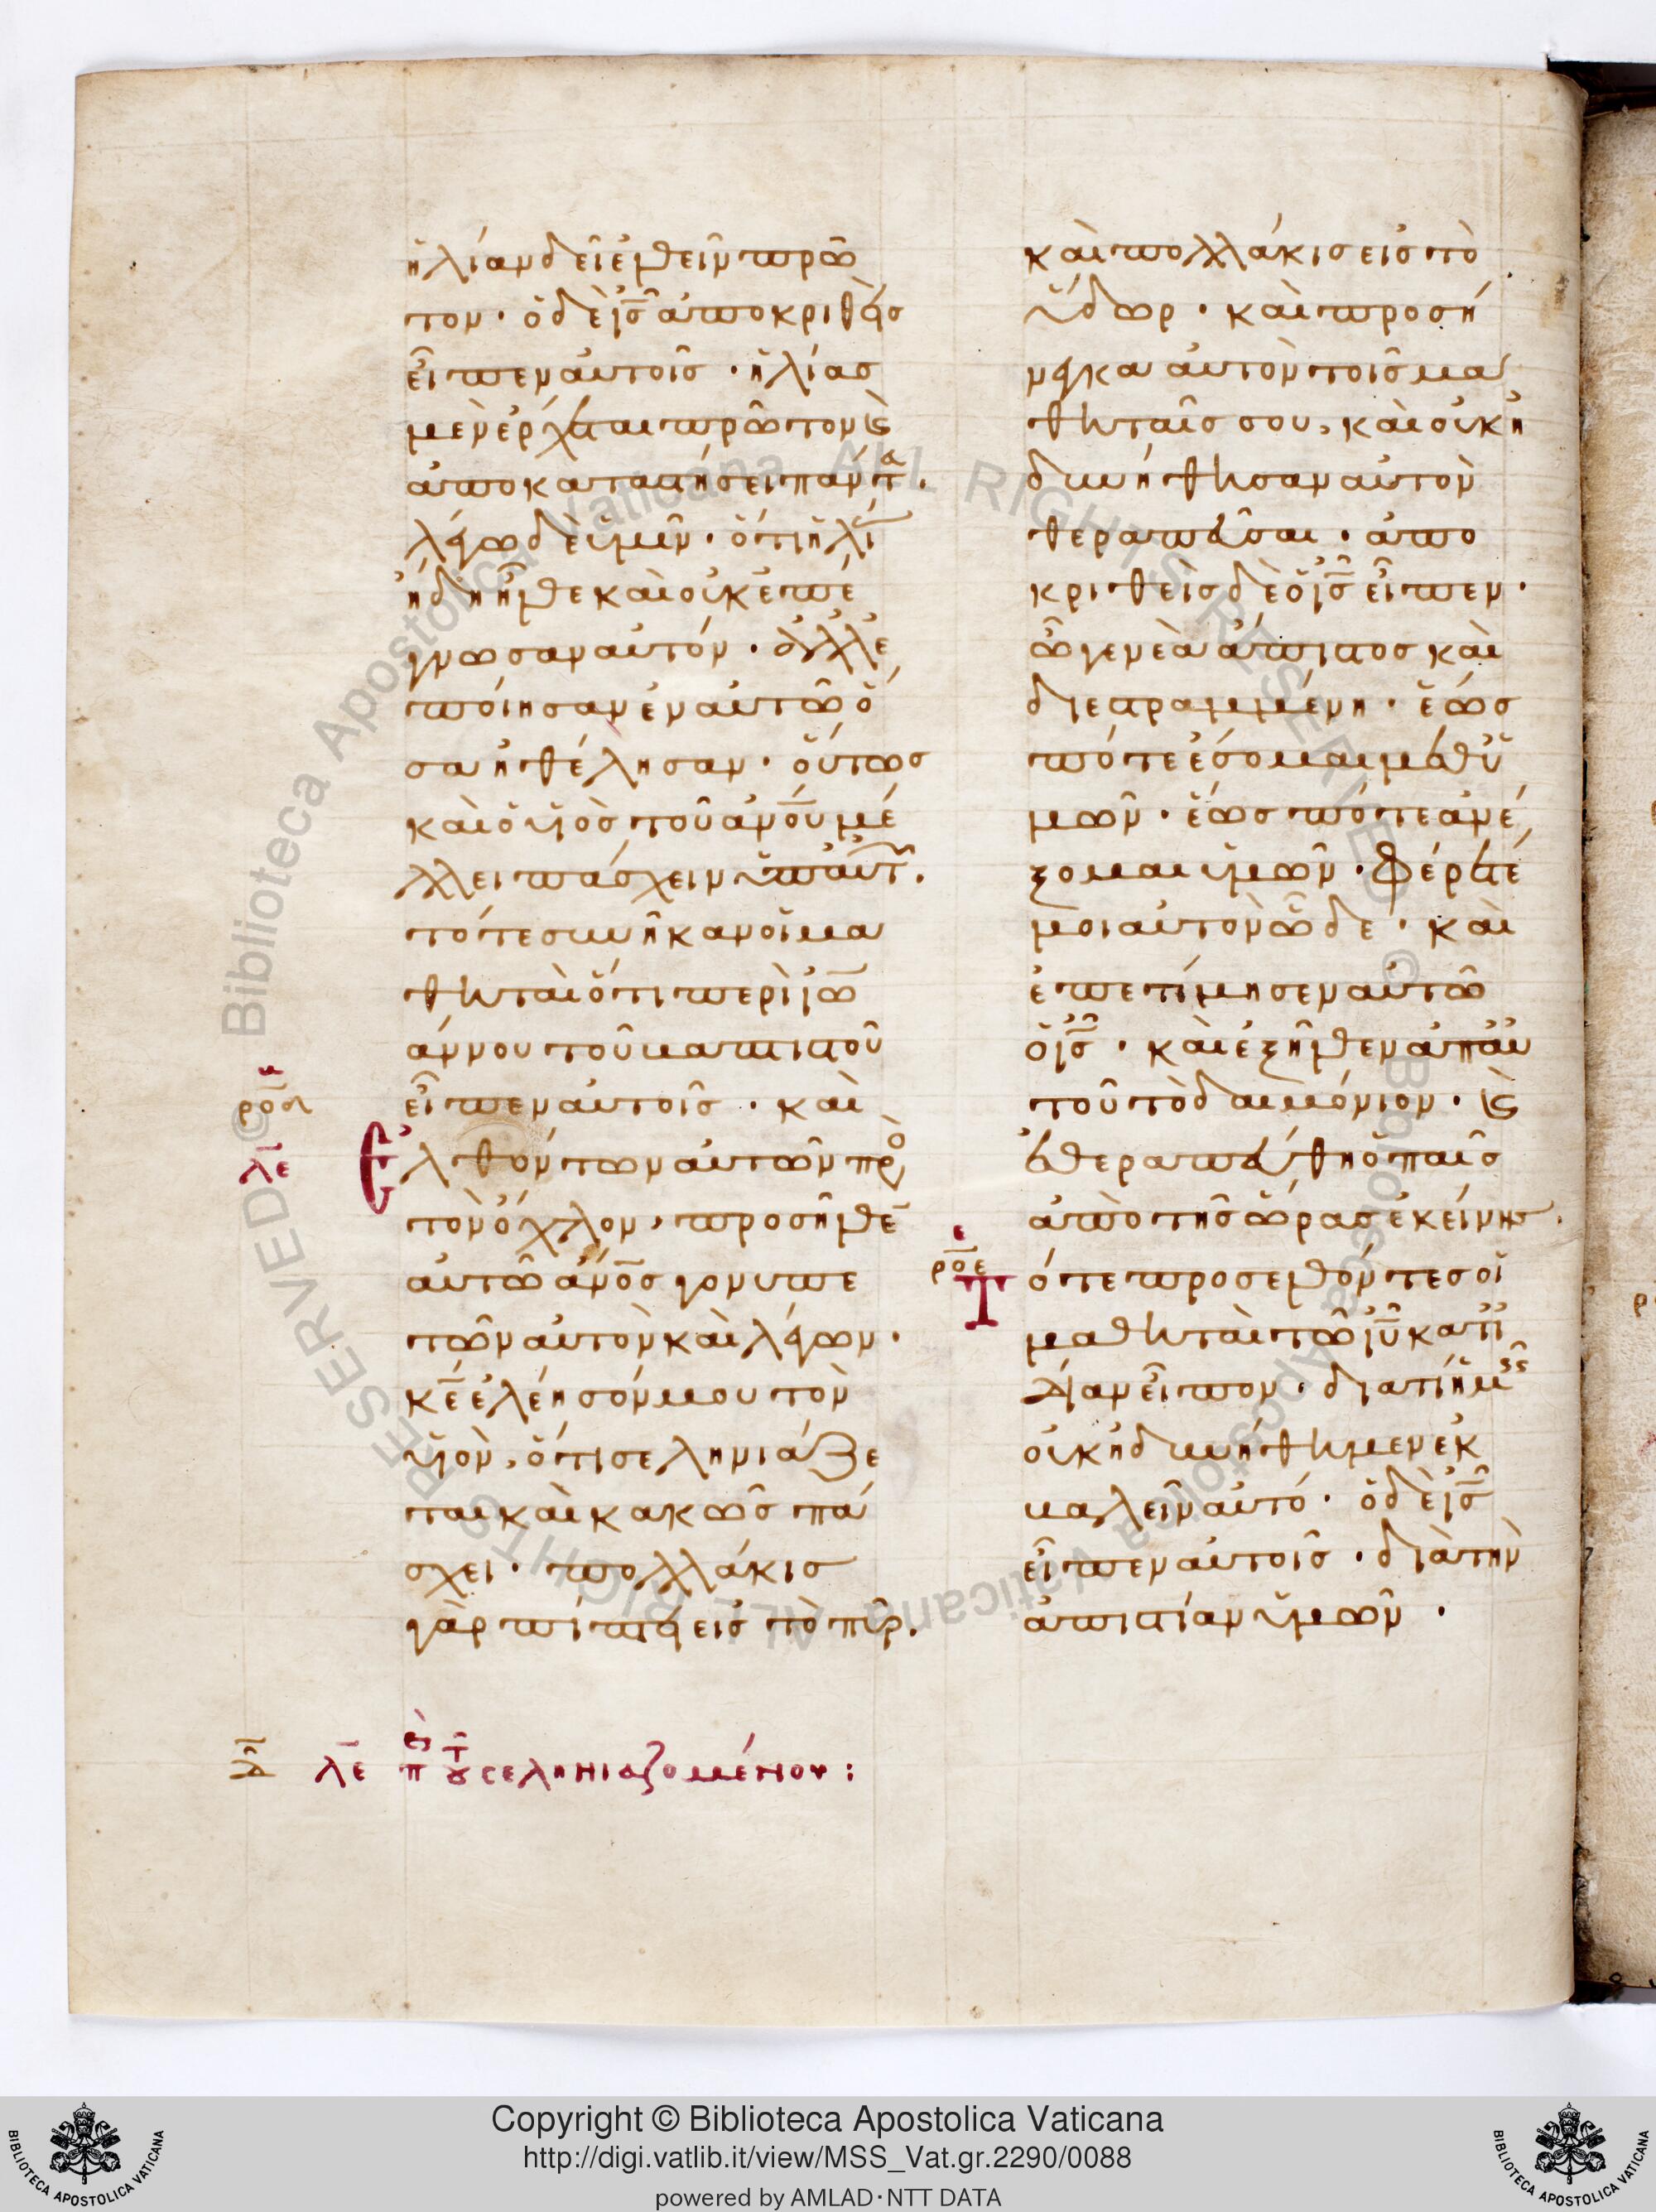 ἡλίαν δεῖ ἐλθεῖν πρῶ
τον· ὁ δὲ ις̅ ἀποκριθεὶς
εἶπεν αὐτοῖς · ἡλίας
μὲν ἔρχεται πρῶτον καὶ
ἀποκαταστήσει πάντα.
λέγω δὲ ὑμῖν· ὅτι ἡλί
ἤδη ἦλθε καὶ οὐκ ἐπέ
γνωσαν αὐτόν· ἀλλ' ἐ
ποίησαν ἐν αὐτῶ ὅ
σα ἠθέλησαν· οὕτως
καὶ ὁ υἱὸς τοῦ ἀνο̅υ μέ
λλει πάσχειν ὑπ' αὐτ.
τότε συνῆκαν οἱ μα
θηταὶ ὅτι περὶ ἰω
άννου τοῦ βαπτιστοῦ
εἶπεν αὐτοῖς · καὶ
ροδ
λε
Ἐλθόντων αὐτῶν πρὸ
τὸν ὄχλον, προσῆλθε
αὐτῶ ἀνο̅ς γονυπε
τῶν αὐτὸν καὶ λέγων·
κε̅ ἐλέησόν μου τὸν
υἱὸν, ὅτι σεληνιάζε
ται καὶ κακῶς πά
σχει· πολλάκις
γὰρ πίπτει εἰς τὸ πῦρ.
καὶ πολλάκις εἰς τὸ
ὕδωρ · καὶ προσή
νεγκα αὐτὸν τοῖς μα
θηταῖς σου, καὶ οὐκ ἠ
δυνήθησαν αὐτὸν
θεραπεῦσαι · ἀπο
κριθεὶς δὲ ὁ ις̅ εἶπεν·
ὦ γενεὰ ἄπιστος καὶ
διεστραμμένη · ἕως
πότε ἔσομαι μεθ' ὑ
μῶν · ἕως πότε ἀνέ
ξομαι ὑμῶν · Φέρετέ
μοι αὐτὸν ὧδε · καὶ
ἐπετίμησεν αὐτῶ
ὁ ις̅ · καὶ ἐξῆλθεν ἀπ' αὐ
τοῦ τὸ δαιμόνιον · καὶ
ἐθεραπεύθη ὁ παῖς
ἀπὸ τῆς ὥρας ἐκείνης.
ροε
Τότε προσελθόντες οἱ
μαθηταὶ τῶ ιυ̅ κατ' ἰ
δίαν εἶπον · διατί ἡμεῖς
οὐκ ἠδυνήθημεν ἐκ
βαλεῖν αὐτό · ὁ δὲ ις̅
εἶπεν αὐτοῖς · διὰ τὴν
ἀπιστίαν ὑμῶν ·
λε περὶ τοῦ σεληνιαζομένου:
Copyright © Biblioteca Apostolica Vaticana
http://digi.vatlib.it/view/MSS_Vat.gr.2290/0088
powered by AMLAD·NTT DATA
BIBLIOTECA APOSTOLICA VATICANA
BIBLIOTECA APOSTOLICA VATICANA
Biblioteca Apostolica Vaticana ALL RIGHTS RESERVED ©
Biblioteca Apostolica Vaticana ALL RIGHTS RESERVED ©